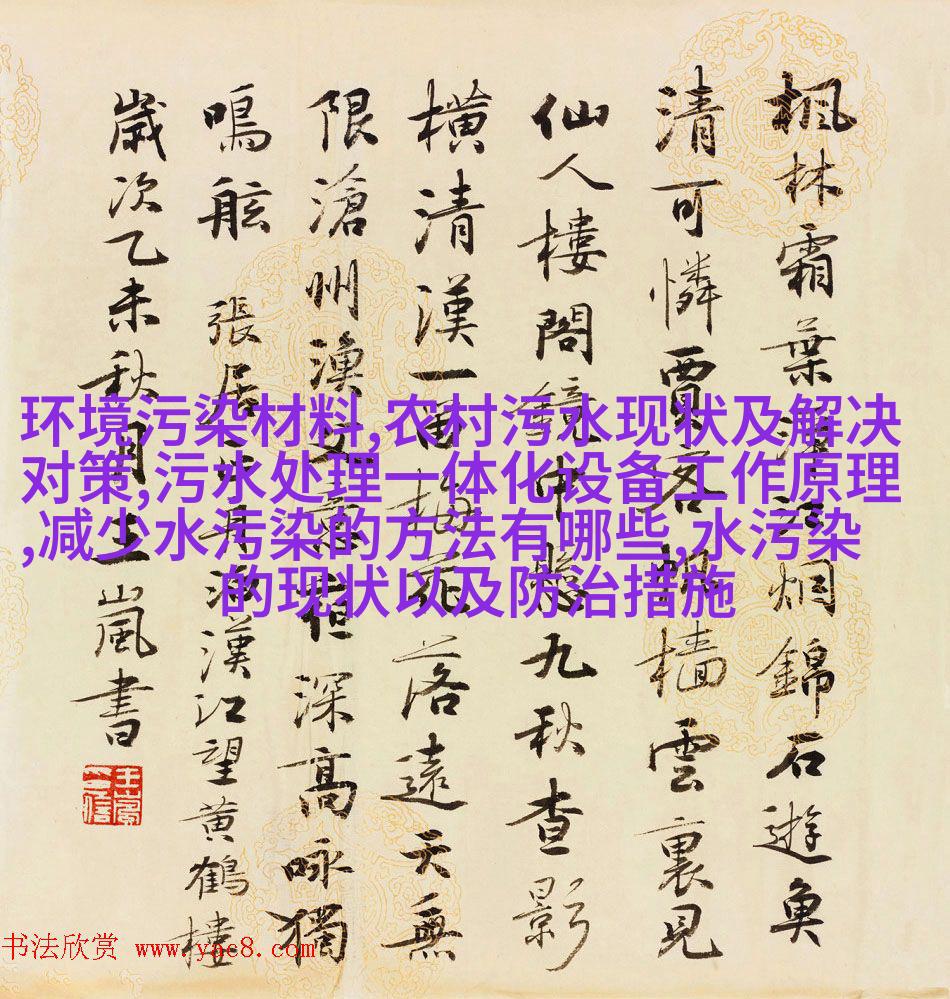 楓林霜葉淨江烟錦石遊魚
清可憐賈客帆檣雲裏見
仙人樓閣鏡中懸九秋查影
橫清漢一笛梅花落遠天無
限滄州漁父意深高咏獨
鳴舷 張居正舟泊漢江望黄鶴樓
歲次乙未秋月王嵐書
环境污染材料,农村污水现状及解决
对策,污水处理一体化设备工作原理
,减少水污染的方法有哪些,水污染
的现状以及防治措施
书法欣赏 www.yac8.com